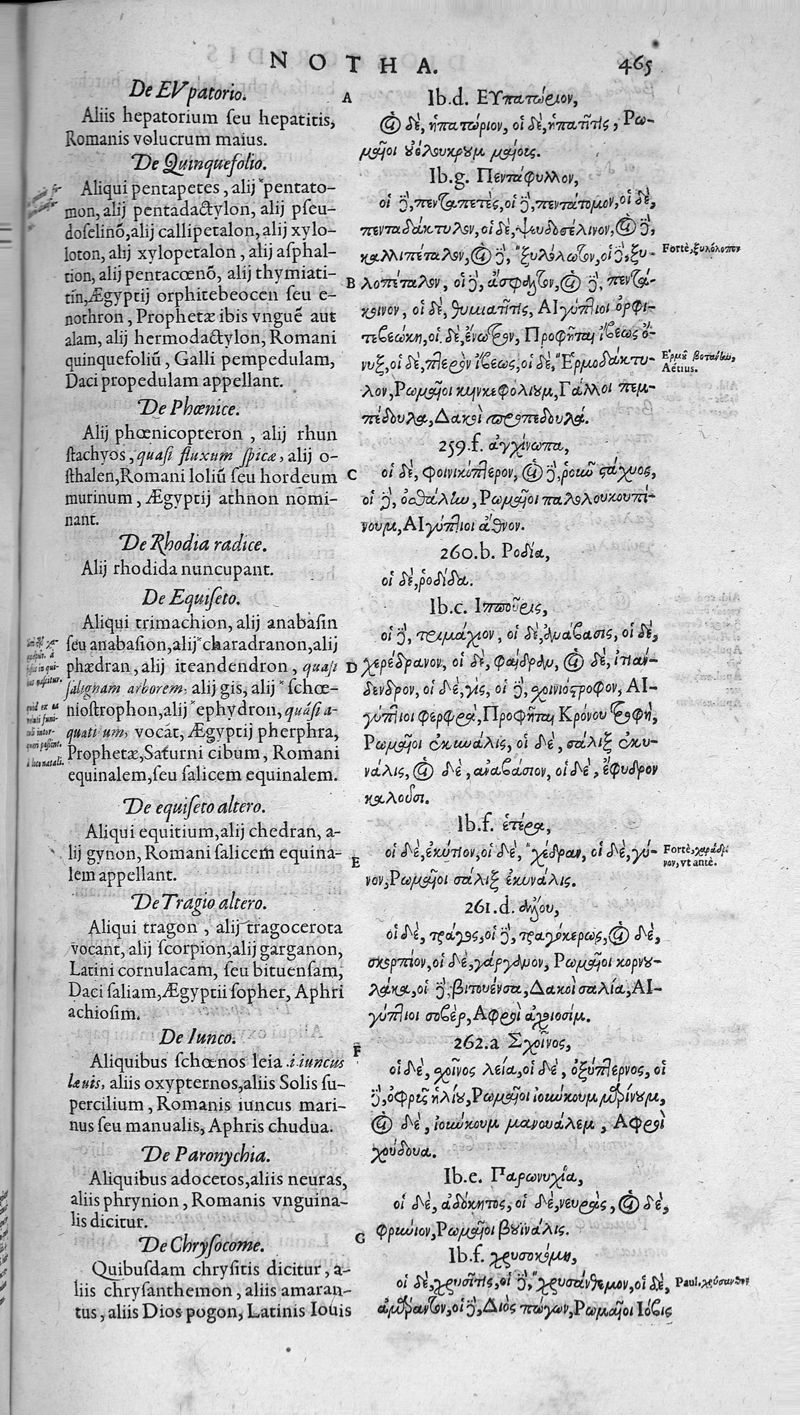 NOTHA. 465
De EVpatorio.
Aliis hepatorium ſeu hepatitis,
Romanis volucrum maius.
De Quinquefolio.
Aliqui pentapetes, alij *pentato-
mon, alij pentadactylon, alij pſeu-
doſelinõ, alij callipetalon, alij xylo-
loton, alij xylopetalon, alij aſphal-
tion, alij pentacœnõ, alij thymiati-
tin, Ægyptij orphitebeocen ſeu e-
nothron, Prophetæ ibis vnguẽ aut
alam, alij hermodactylon, Romani
quinquefoliũ, Galli pempedulam,
Daci propedulam appellant.
De Phœnice.
Alij phœnicopteron, alij rhun
ſtachyos, quaſi fluxum ſpicæ, alij o-
ſthalen, Romani loliũ ſeu hordeum
murinum, Ægyptij athnon nomi-
nant.
De Rhodia radice.
Alij rhodida nuncupant.
De Equiſeto.
Aliqui trimachion, alij anabaſin
ſeu anabaſion, alij *charadranon, alij
phædran, alij iteandendron, quaſi
ſalignam arborem, alij gis, alij *ſchœ-
nioſtrophon, alij *ephydron, quaſi a-
quati um, vocãt, Ægyptij pherphra,
Prophetæ, Saturni cibum, Romani
equinalem, ſeu ſalicem equinalem.
De equiſeto altero.
Aliqui equitium, alij chedran, a-
lij gynon, Romani ſalicem equina-
lem appellant.
De Tragio altero.
Aliqui tragon, alij tragocerota
vocant, alij ſcorpion, alij garganon,
Latini cornulacam, ſeu bituenſam,
Daci ſaliam, Ægyptii ſopher, Aphri
achioſim.
De Iunco.
Aliquibus ſchœnos leia .i. iuncus
læuis, aliis oxypternos, aliis Solis ſu-
percilium, Romanis iuncus mari-
nus ſeu manualis, Aphris chudua.
De Paronychia.
Aliquibus adocetos, aliis neuras,
aliis phrynion, Romanis vnguina-
lis dicitur.
De Chryſocome.
Quibuſdam chryſitis dicitur, a-
liis chryſanthemon, aliis amaran-
tus, aliis Dios pogon, Latinis Iouis
A
B
C
D
E
F
G
Ib.d. ΕΥπατώριον,
οἱ δὲ, ἡπατώριον, οἱ δὲ, ἡπατῖτις, Ρω-
μαῖοι ϐόλουκρουμ μαίους.
Ib.g. Πεντάφυλλον,
οἱ ἢ, πενταπετὲς, οἱ ἢ, πεντάτομον, οἱ δὲ,
πενταδάκτυλον, οἱ δὲ, ψευδοσέλινον, οἱ ἢ,
καλλιπέταλον, οἱ ἢ, *ξυλόλωτον, οἱ ἢ, ξυ-
λοπέταλον, οἱ ἢ, ἀσφάλτιον, οἱ ἢ, πεντά-
κοινον, οἱ δὲ, θυμιατῖτις, ΑΙγύπτιοι ὀρφι-
τεβεώκη, οἱ δὲ, ἐνωτρον, Προφῆται ἴβεως ὄ-
νυξ, οἱ δὲ, πτερὸν ἴβεως, οἱ δὲ, *Ἑρμοδάκτυ-
λον, Ρωμαῖοι κηνκεφόλιουμ, Γάλλοι πεμ-
πέδουλα, Δακοὶ προπεδουλά.
259.f. ἀγχίνωπα,
οἱ δὲ, φοινικόπτερον, οἱ ἢ, ῥοιῶ στάχυος,
οἱ ἢ, ὀσθάλιω, Ρωμαῖοι παλολουκουπί-
νουμ, ΑΙγύπτιοι ἄθνον.
260.b. Ροδία,
οἱ δὲ, ῥοδίδα.
Ib.c. Ιπποῦρις,
οἱ ἢ, τριμάχιον, οἱ δὲ, ἀνάβασις, οἱ δὲ,
χερέδρανον, οἱ δὲ, φαίδραν, οἱ δὲ, ἰτιαν-
δενδρον, οἱ δὲ, γὶς, οἱ ἢ, σχοινιόστροφον, ΑΙ-
γύπτιοι φερφραὶ, Προφῆται Κρόνου τροφὴ,
Ρωμαῖοι ἐκιουάλις, οἱ δὲ, σάλιξ ἐκυ-
νάλις, οἱ δὲ, ἀναβάσιον, οἱ δὲ, ἐφυδρον
καλοῦσι.
Ib.f. ἑτέρα,
οἱ δὲ, ἐκύτιον, οἱ δὲ, *χέδραν, οἱ δὲ, γύ-
νον, Ρωμαῖοι σάλιξ ἐκυνάλις.
261.d.
οἱ δὲ, τράγος, οἱ ἢ, τραγόκερως, οἱ δὲ,
σκορπίον, οἱ δὲ, γάργανον, Ρωμαῖοι κορνου-
λάκα, οἱ ἢ, βιτουένσα, Δακοὶ σαλία, ΑΙ-
γύπτιοι σοβέρ, Αφροὶ ἀχιοσίμ.
262.a Σχοῖνος,
οἱ δὲ, σχοῖνος λεία, οἱ δὲ, ὀξύπτερνος, οἱ
ἢ, ὀφρῦς ἡλίου, Ρωμαῖοι ἰουώκουμ μαρίνουμ,
οἱ δὲ, ἰουώκουμ μανουάλεμ, Αφροὶ
χούδουα.
Ib.e. Παρονυχία,
οἱ δὲ, ἀδόκητος, οἱ δὲ, νευρὰς, οἱ δὲ,
φριώιον, Ρωμαῖοι ϐυϊνάλις.
Ib.f. χρυσοκόμη,
οἱ δὲ, χρυσῖτις, οἱ ἢ, *χρυσάνθεμον, οἱ δὲ,
ἀμάραντον, οἱ ἢ, Διὸς πώγων, Ρωμαῖοι Ιόβις
Fortè, ξυλόλοπον
Ἑρμοῦ βοτάνιον,
Aëtius.
Fortè, χαράδρα
νον, vt antè.
Paul. χρύσανθον